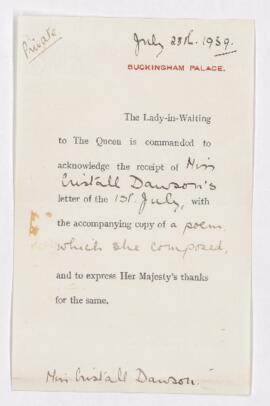 Private
July 28th. 1939.
BUCKINGHAM PALACE.
The Lady-in-Waiting
to The Queen is commanded to
acknowledge the receipt of Miss
Cristall Dawson's
letter of the 1st. July, with
the accompanying copy of a poem
which she composed,
and to express Her Majesty's thanks
for the same.
Miss Cristall Dawson.